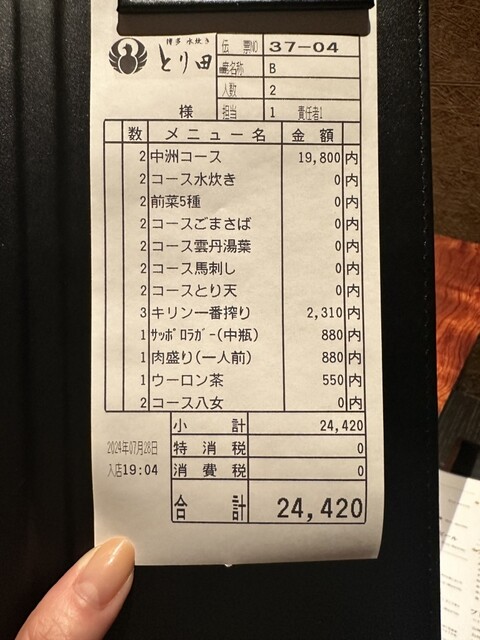 博多 水炊き
とり田
伝票NO 37-04
卓名称 B
人数 2
様 担当 1 責任者1
数 メニュー名 金額
2 中洲コース 19,800 内
2 コース水炊き 0 内
2 前菜5種 0 内
2 コースごまさば 0 内
2 コース雲丹湯葉 0 内
2 コース馬刺し 0 内
2 コースとり天 0 内
3 キリン一番搾り 2,310 内
1 ｻｯﾎﾟﾛﾗｶﾞｰ(中瓶) 880 内
1 肉盛り(一人前) 880 内
1 ウーロン茶 550 内
2 コース八女 0 内
小計 24,420
2024年07月28日 特消税 0
入店19:04 消費税 0
合計 24,420